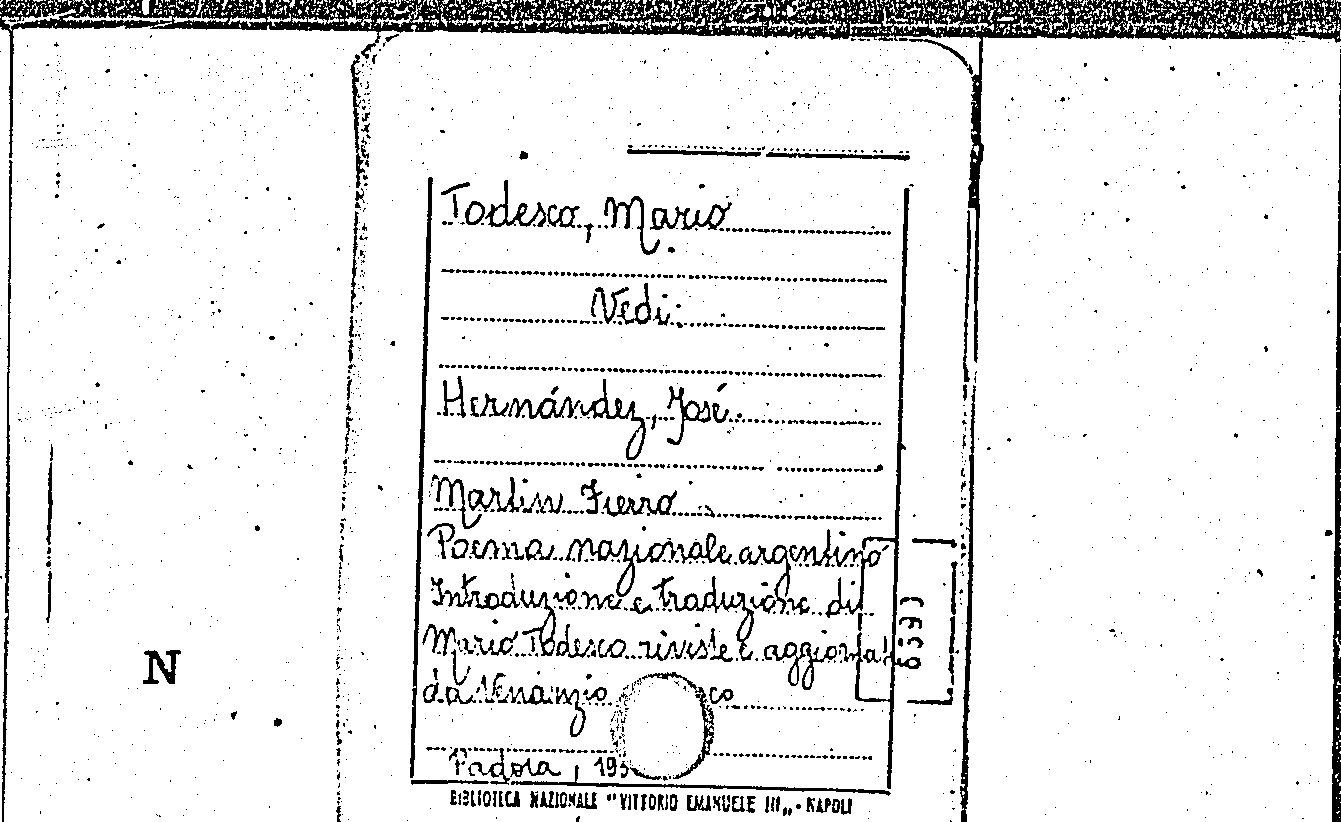 Todesco, Mario
Vedi:
Hernández, José.
Martin Fierro
Poema nazionale argentino
Introduzione e traduzione di
Mario Todesco riviste e aggiornat
da Venanzio
Padova, 195
6593
N
BIBLIOTECA NAZIONALE "VITTORIO EMANUELE III„ - NAPOLI